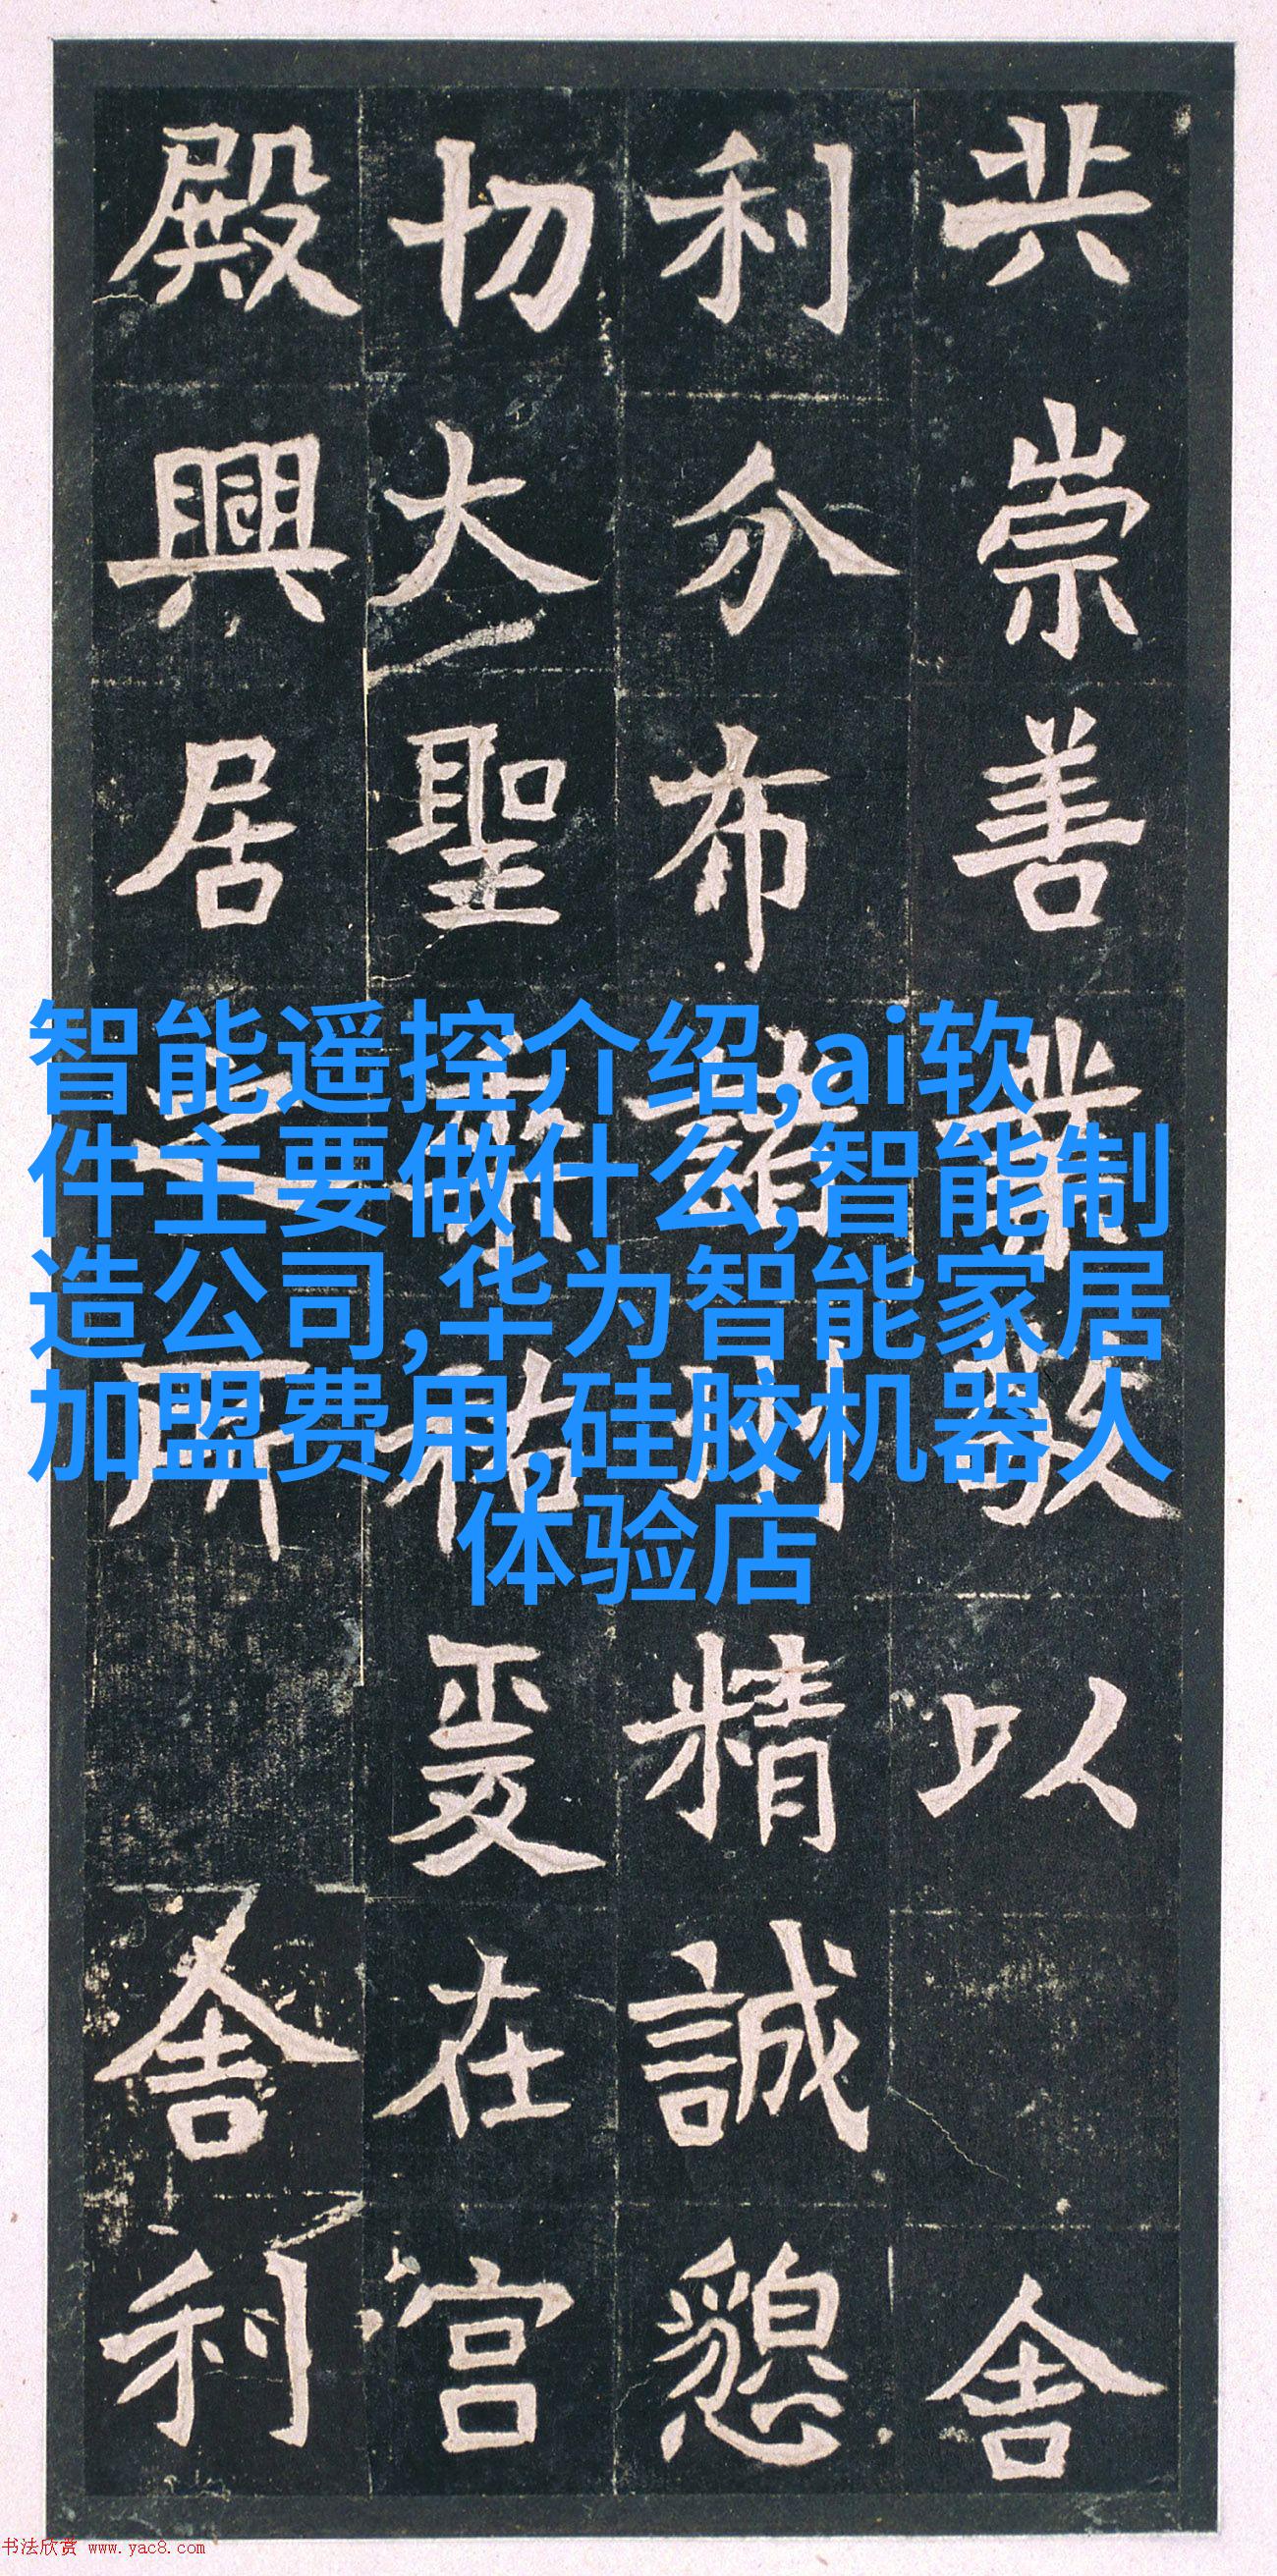 共崇善業敬以舍
利分布諸州精誠懇
切大聖垂祐爰在宮
殿興居之所舍利
智能遥控介绍,ai软
件主要做什么,智能制
造公司,华为智能家居
加盟费用,硅胶机器人
体验店
书法欣赏 www.yac8.com